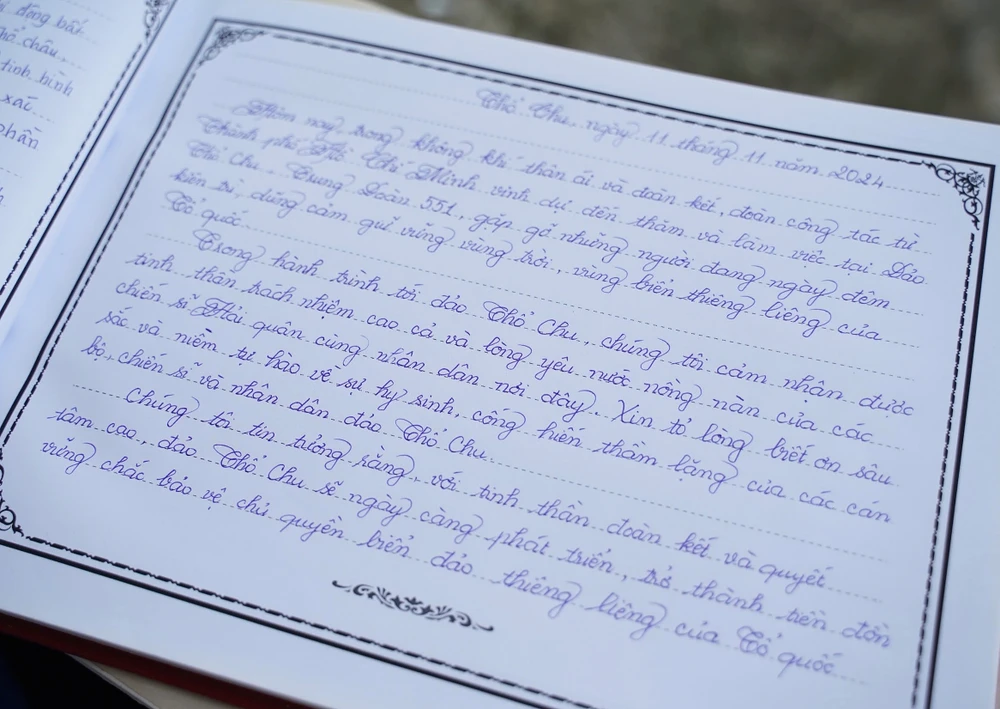 đồng bất
Thổ Châu,
tình hình
xác
phần
Thổ Chu, ngày 11 tháng 11 năm 2024
Hôm nay, trong không khí thân ái và đoàn kết, đoàn công tác từ
Thành phố Hồ Chí Minh vinh dự đến thăm và làm việc tại Đảo
Thổ Chu, Trung Đoàn 551, gặp gỡ những người đang ngày đêm
kiên trì, dũng cảm giữ vững vùng trời, vùng biển thiêng liêng của
Tổ quốc.
Trong hành trình tới đảo Thổ Chu, chúng tôi cảm nhận được
tinh thần trách nhiệm cao cả và lòng yêu nước nồng nàn của các
chiến sĩ Hải quân cùng nhân dân nơi đây. Xin tỏ lòng biết ơn sâu
sắc và niềm tự hào về sự hy sinh, cống hiến thầm lặng của các cán
bộ, chiến sĩ và nhân dân đảo Thổ Chu.
Chúng tôi tin tưởng rằng, với tinh thần đoàn kết và quyết
tâm cao, đảo Thổ Chu sẽ ngày càng phát triển, trở thành tiền đồn
vững chắc bảo vệ chủ quyền biển đảo thiêng liêng của Tổ quốc.